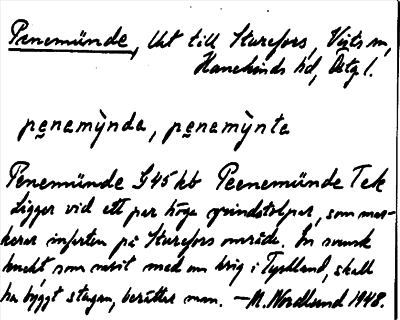 Penemünde, Uht till Sturefors, Vists sn,
Hanekinds hd, Östg l.
pe̮namỳnda, pe̮namỳnta
Penemünde G45 kb Peenemünde Tck
Ligger vid ett par höga grindstolpar, som mar-
kerar infarten på Sturefors område. En svensk
knekt, som varit med om krig i Tyskland, skall
ha byggt stugan, berättar man. — M. Nordlund 1948.